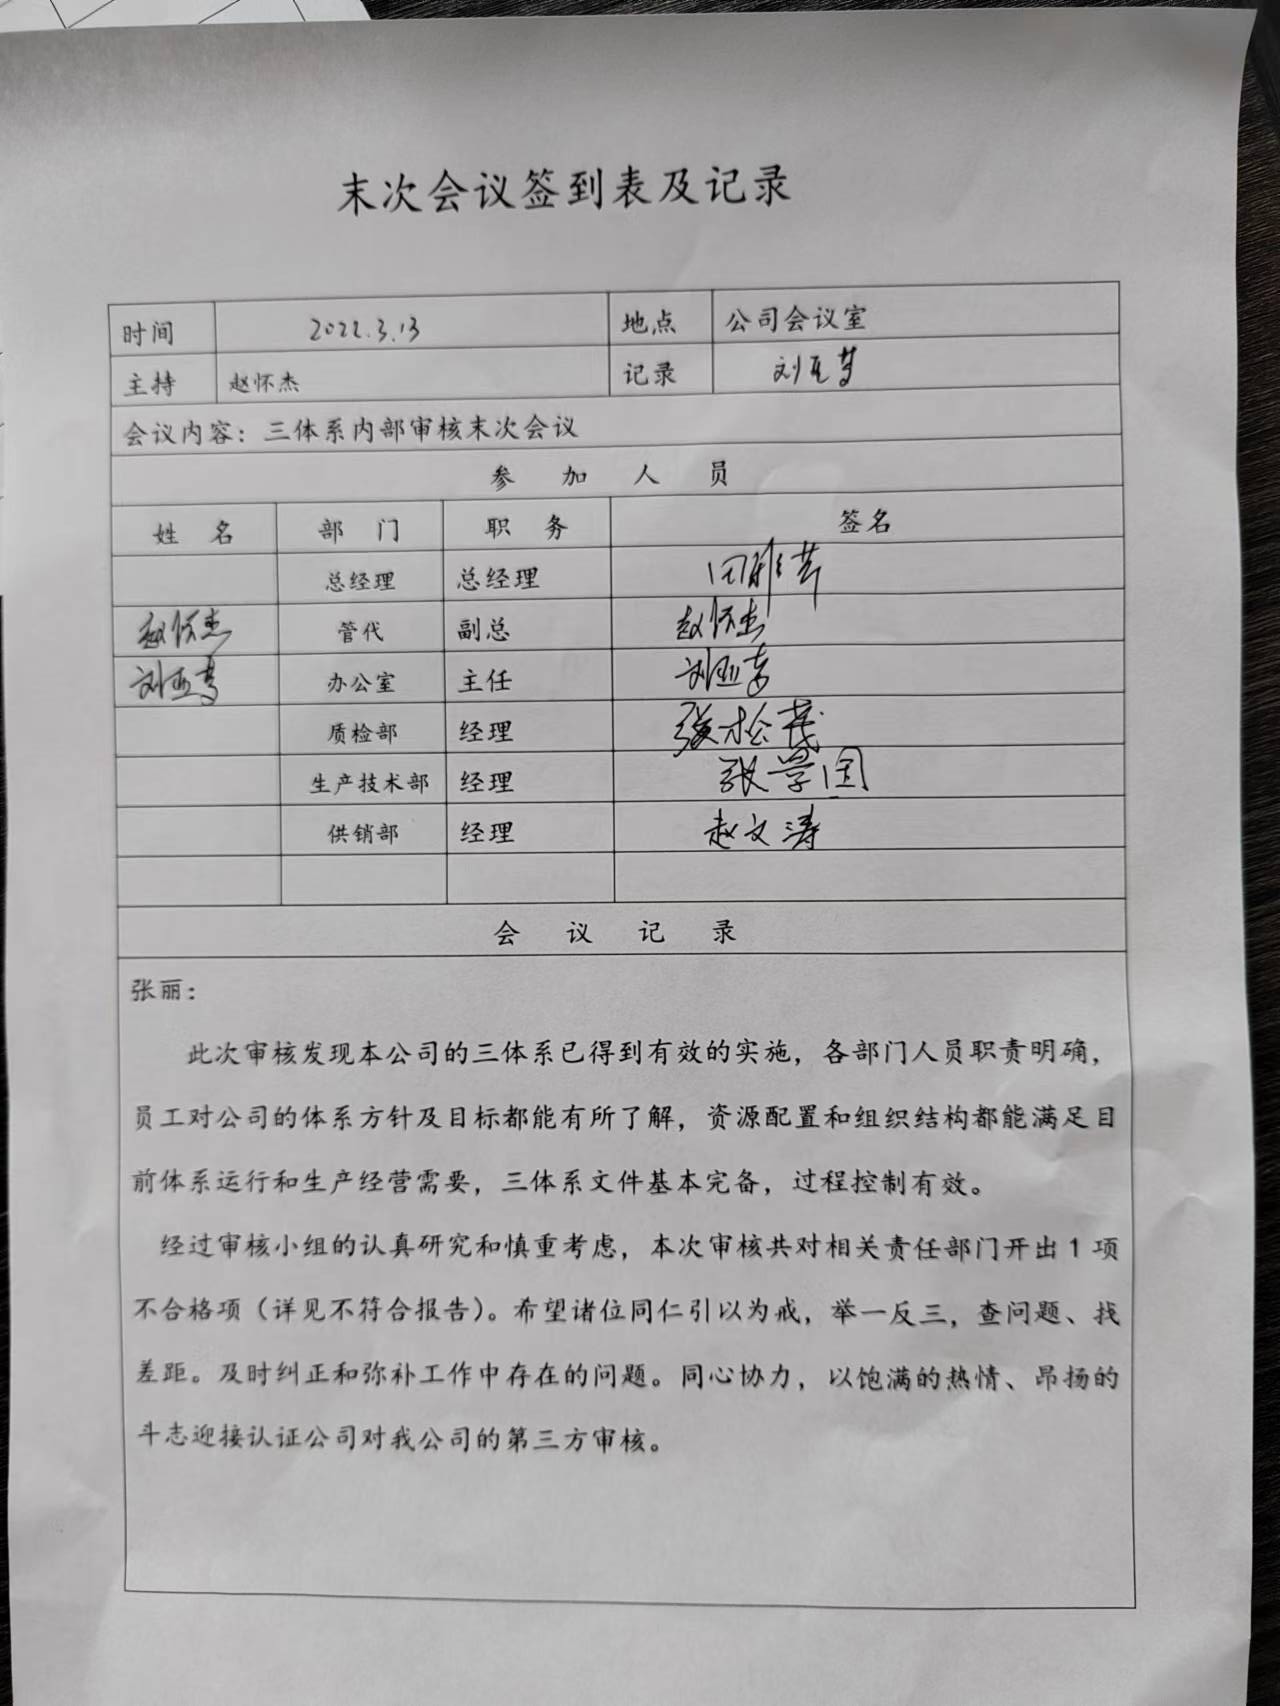 末次会议签到表及记录
时间 2022.3.13 地点 公司会议室
主持 赵怀杰 记录 刘亚梦
会议内容：三体系内部审核末次会议
参 加 人 员
姓 名 部 门 职 务 签名
总经理 总经理
赵怀杰 管代 副总 赵怀杰
刘亚梦 办公室 主任 刘亚梦
质检部 经理 张松茂
生产技术部 经理 张学国
供销部 经理 赵文涛
会 议 记 录
张丽：
此次审核发现本公司的三体系已得到有效的实施，各部门人员职责明确，
员工对公司的体系方针及目标都能有所了解，资源配置和组织结构都能满足目
前体系运行和生产经营需要，三体系文件基本完备，过程控制有效。
经过审核小组的认真研究和慎重考虑，本次审核共对相关责任部门开出 1 项
不合格项（详见不符合报告）。希望诸位同仁引以为戒，举一反三，查问题、找
差距。及时纠正和弥补工作中存在的问题。同心协力，以饱满的热情、昂扬的
斗志迎接认证公司对我公司的第三方审核。